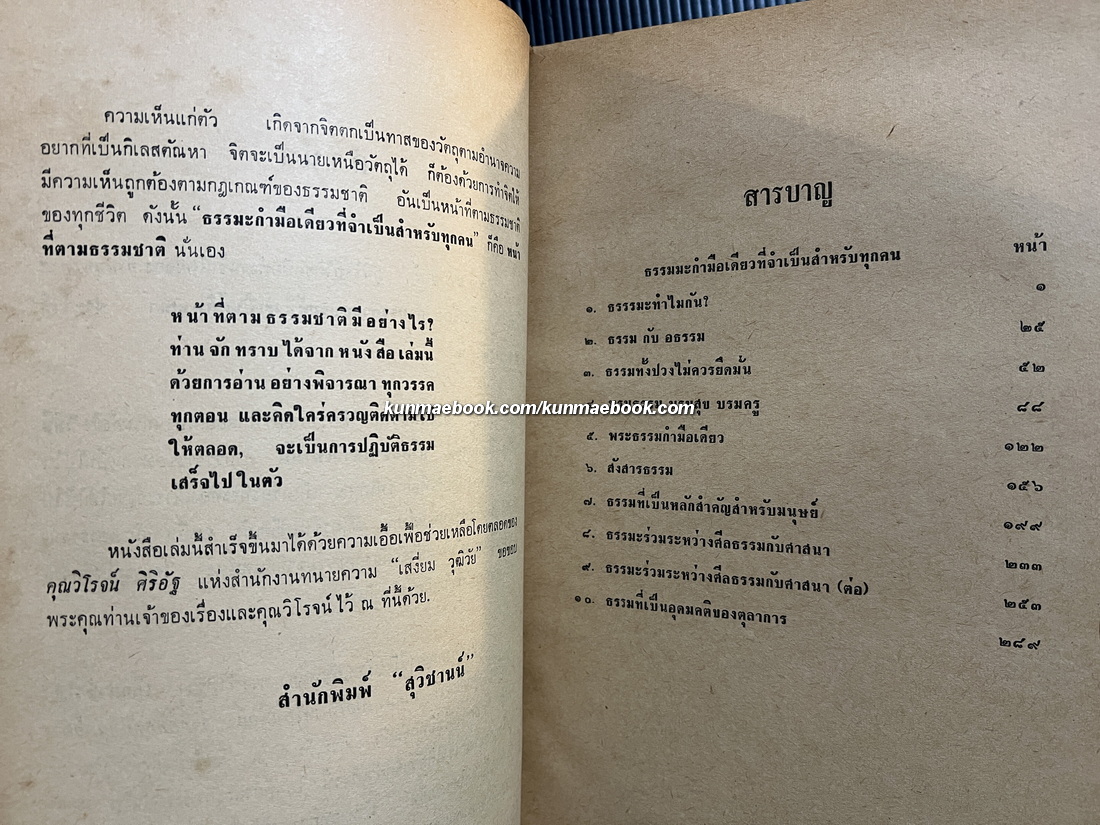 ความเห็นแก่ตัว เกิดจากจิตตกเป็นทาสของวัตถุตามอำนาจความ
อยากที่เป็นกิเลสตัณหา จิตจะเป็นนายเหนือวัตถุได้ ก็ต้องด้วยการทำจิตให้
มีความเห็นถูกต้องตามกฎเกณฑ์ของธรรมชาติ อันเป็นหน้าที่ตามธรรมชาติ
ของทุกชีวิต ดังนั้น “ธรรมะกำมือเดียวที่จำเป็นสำหรับทุกคน” ก็คือ หน้า
ที่ตามธรรมชาติ นั่นเอง
หน้าที่ตามธรรมชาติมีอย่างไร?
ท่านจักทราบได้จากหนังสือเล่มนี้
ด้วยการอ่านอย่างพิจารณาทุกวรรค
ทุกตอน และคิดใคร่ครวญติดตามไป
ให้ตลอด, จะเป็นการปฏิบัติธรรม
เสร็จไปในตัว
หนังสือเล่มนี้สำเร็จขึ้นมาได้ด้วยความเอื้อเฟื้อช่วยเหลือโดยตลอดของ
คุณวิโรจน์ ศิริอัฐ แห่งสำนักงานทนายความ “เสงี่ยม วุฒิวัย” ขอขอบ
พระคุณท่านเจ้าของเรื่องและคุณวิโรจน์ไว้ ณ ที่นี้ด้วย.
สำนักพิมพ์ “สุวิชานน์”
สารบาญ
หน้า
ธรรมมะกำมือเดียวที่จำเป็นสำหรับทุกคน
๑. ธรรรมะทำไมกัน? ๑
๒. ธรรม กับ อธรรม ๒๕
๓. ธรรมทั้งปวงไม่ควรยึดมั่น ๕๒
บรมธรรม บรมสุข บรมครู ๘๘
๕. พระธรรมกำมือเดียว ๑๒๒
๖. สังสารธรรม ๑๕๖
๗. ธรรมที่เป็นหลักสำคัญสำหรับมนุษย์ ๑๙๙
๘. ธรรมะร่วมระหว่างศีลธรรมกับศาสนา ๒๓๓
๙. ธรรมะร่วมระหว่างศีลธรรมกับศาสนา (ต่อ) ๒๕๓
๑๐. ธรรมที่เป็นอุดมคติของตุลาการ ๒๘๙
kunmaebook.com/kunmaebook.com